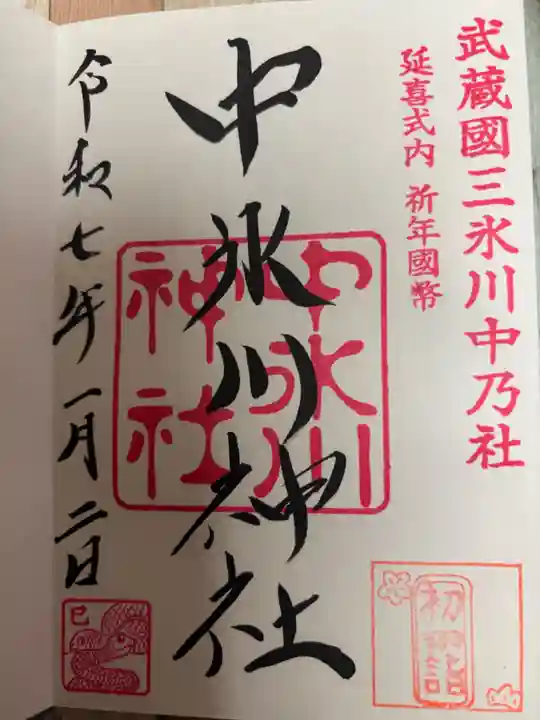 武蔵國三氷川中乃社
延喜式内 祈年國幣
中氷川神社
中氷川
神社
初詣
令和七年一月二日
巳